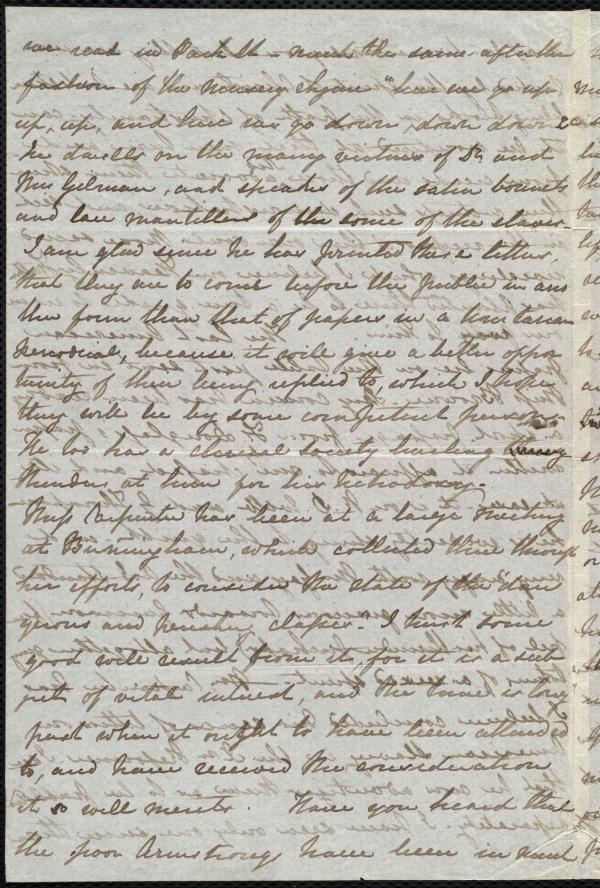 we read in Part II - much the same after the
fashion of the nursery rhyme "here we go up,
up, up, and here we go down, down down"
He dwells on the many virtues of Dr and
Mrs Gilman, and speaks of the satin bonnets
and lace mantillas of the some of the slaves -
I am glad since he has printed these letters,
that they are to come before the public in ano
ther form than that of papers in a Unitarian
Periodical, because it will give a better oppor
tunity of their being replied to, which I hope
they will be by some competent person -
He too has a clerical society hurling
thunders at him for his heterodoxy -
Miss Carpenter has been at a large meeting
at Birmingham, which collected there through
her efforts, to consider the state of the "dan
gerous and perishing classes." I trust some
good will result from it, for it is a sub
ject of vital interest, and the time is long
past when it ought to have been attended
to, and have received the consideration
it so well merits. Have you heard that
the poor Armstrongs have been in much